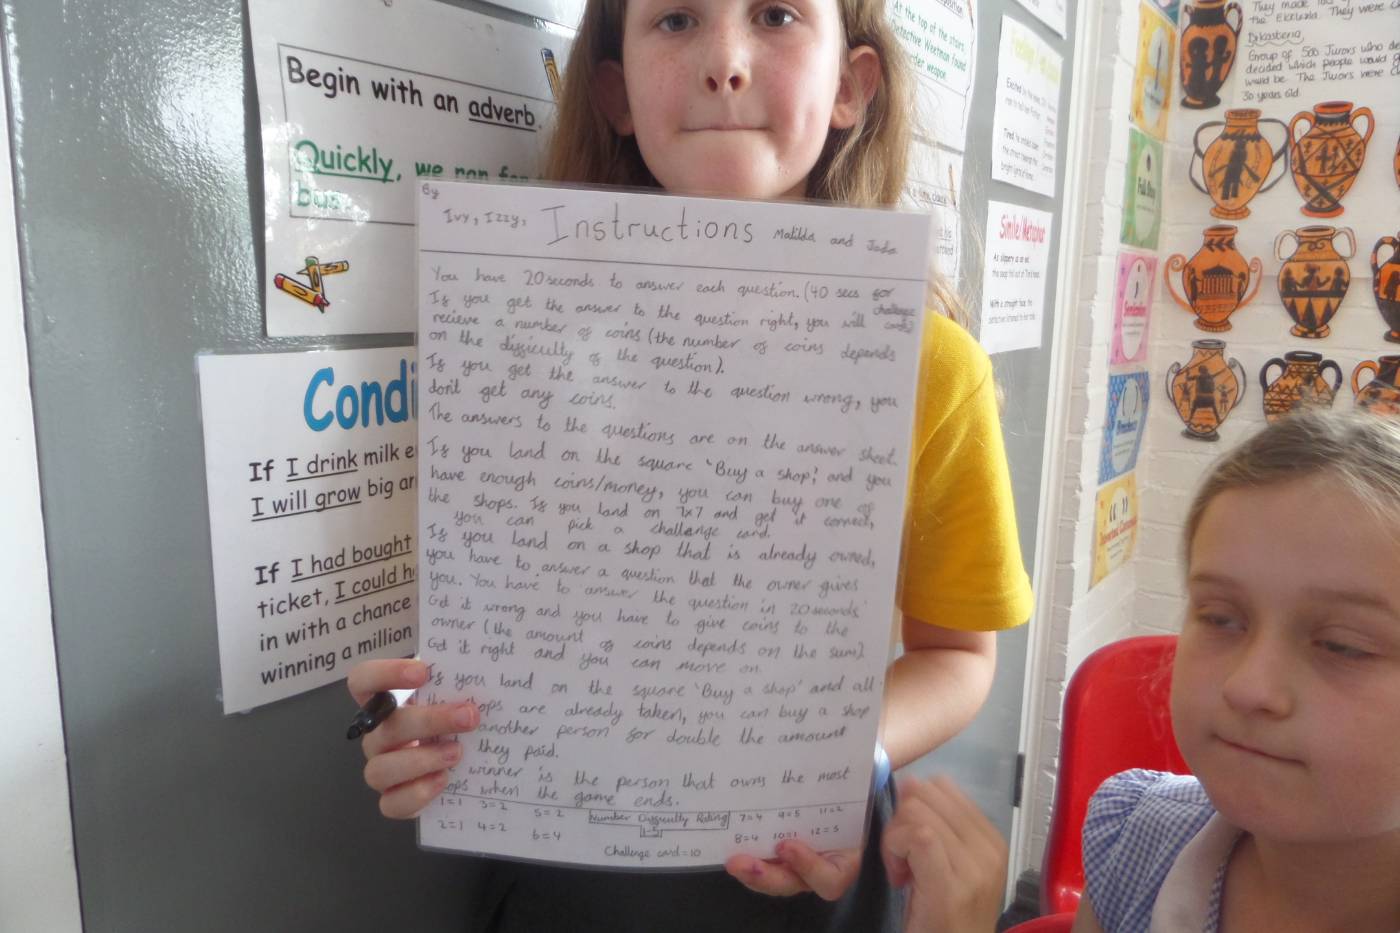 Begin with an adverb.
Quickly, we ran for
bus.
Condi
If I drink milk
I will grow big
If I had bought
ticket, I could
in with a chance
winning a million
By
Ivy, Izzy, Instructions Matilda and Jade
You have 20 seconds to answer each question. (40 secs for challenge cards)
If you get the answer to the question right, you will
recieve a number of coins (the number of coins depends
on the difficulty of the question).
If you get the answer to the question wrong, you
don't get any coins.
The answers to the questions are on the answer sheet.
If you land on the square 'Buy a shop', and you
have enough coins/money, you can buy one of
the shops. If you land on 7x7 and get it correct,
you can pick a challenge card.
If you land on a shop that is already owned,
you have to answer a question that the owner gives
you. You have to answer the question in 20 seconds.
Get it wrong and you have to give coins to the
owner (the amount of coins depends on the sum).
Get it right and you can move on.
If you land on the square 'Buy a shop' and all
shops are already taken, you can buy a shop
another person for double the amount
they paid.
winner is the person that owns the most
when the game ends.
1=1 3=2 5=2 Number Difficulty Rating 7=4 9=5 11=2
2=1 4=2 6=4 1-5 8=4 10=1 12=5
Challenge card=10
At the top of the stairs,
Detective Weetman found
weapon.
Simile/Metaphor
They made
the Ekklesia. They were
Dikasteria
Group of 500 Jurors who
decided which people would
would be. The Jurors were
30 years old.
Full Stop